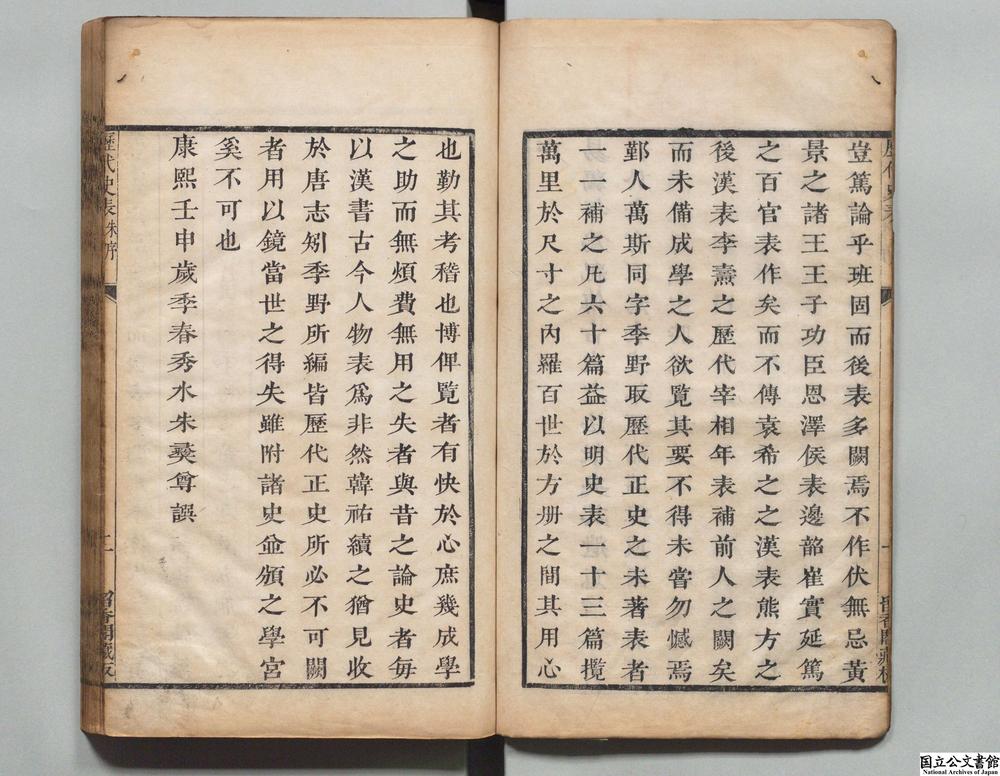 豈篤論乎班固而後表多闕焉不作伏無忌黃
景之諸王王子功臣恩澤侯表邊韶崔寔延篤
之百官表作矣而不傳袁希之之漢表熊方之
後漢表李燾之歷代宰相年表補前人之闕矣
而未備成學之人欲覧其要不得未嘗勿憾焉
鄞人萬斯同字季野取歷代正史之未著表者
一一補之凢六十篇益以明史表一十三篇攬
萬里於尺寸之內羅百世於方册之間其用心
也勤其考稽也博俾覧者有快於心庶幾成學
之助而無煩費無用之失者與昔之論史者每
以漢書古今人物表爲非然韓祐續之猶見收
於唐志矧季野所編皆歷代正史所必不可闕
者用以鏡當世之得失雖附諸史並頒之學宮
奚不可也
康熙壬申歲季春秀水朱彝尊譔
歷代史表
朱序
二
留香閣藏板
國立公文書館
National Archives of Japan